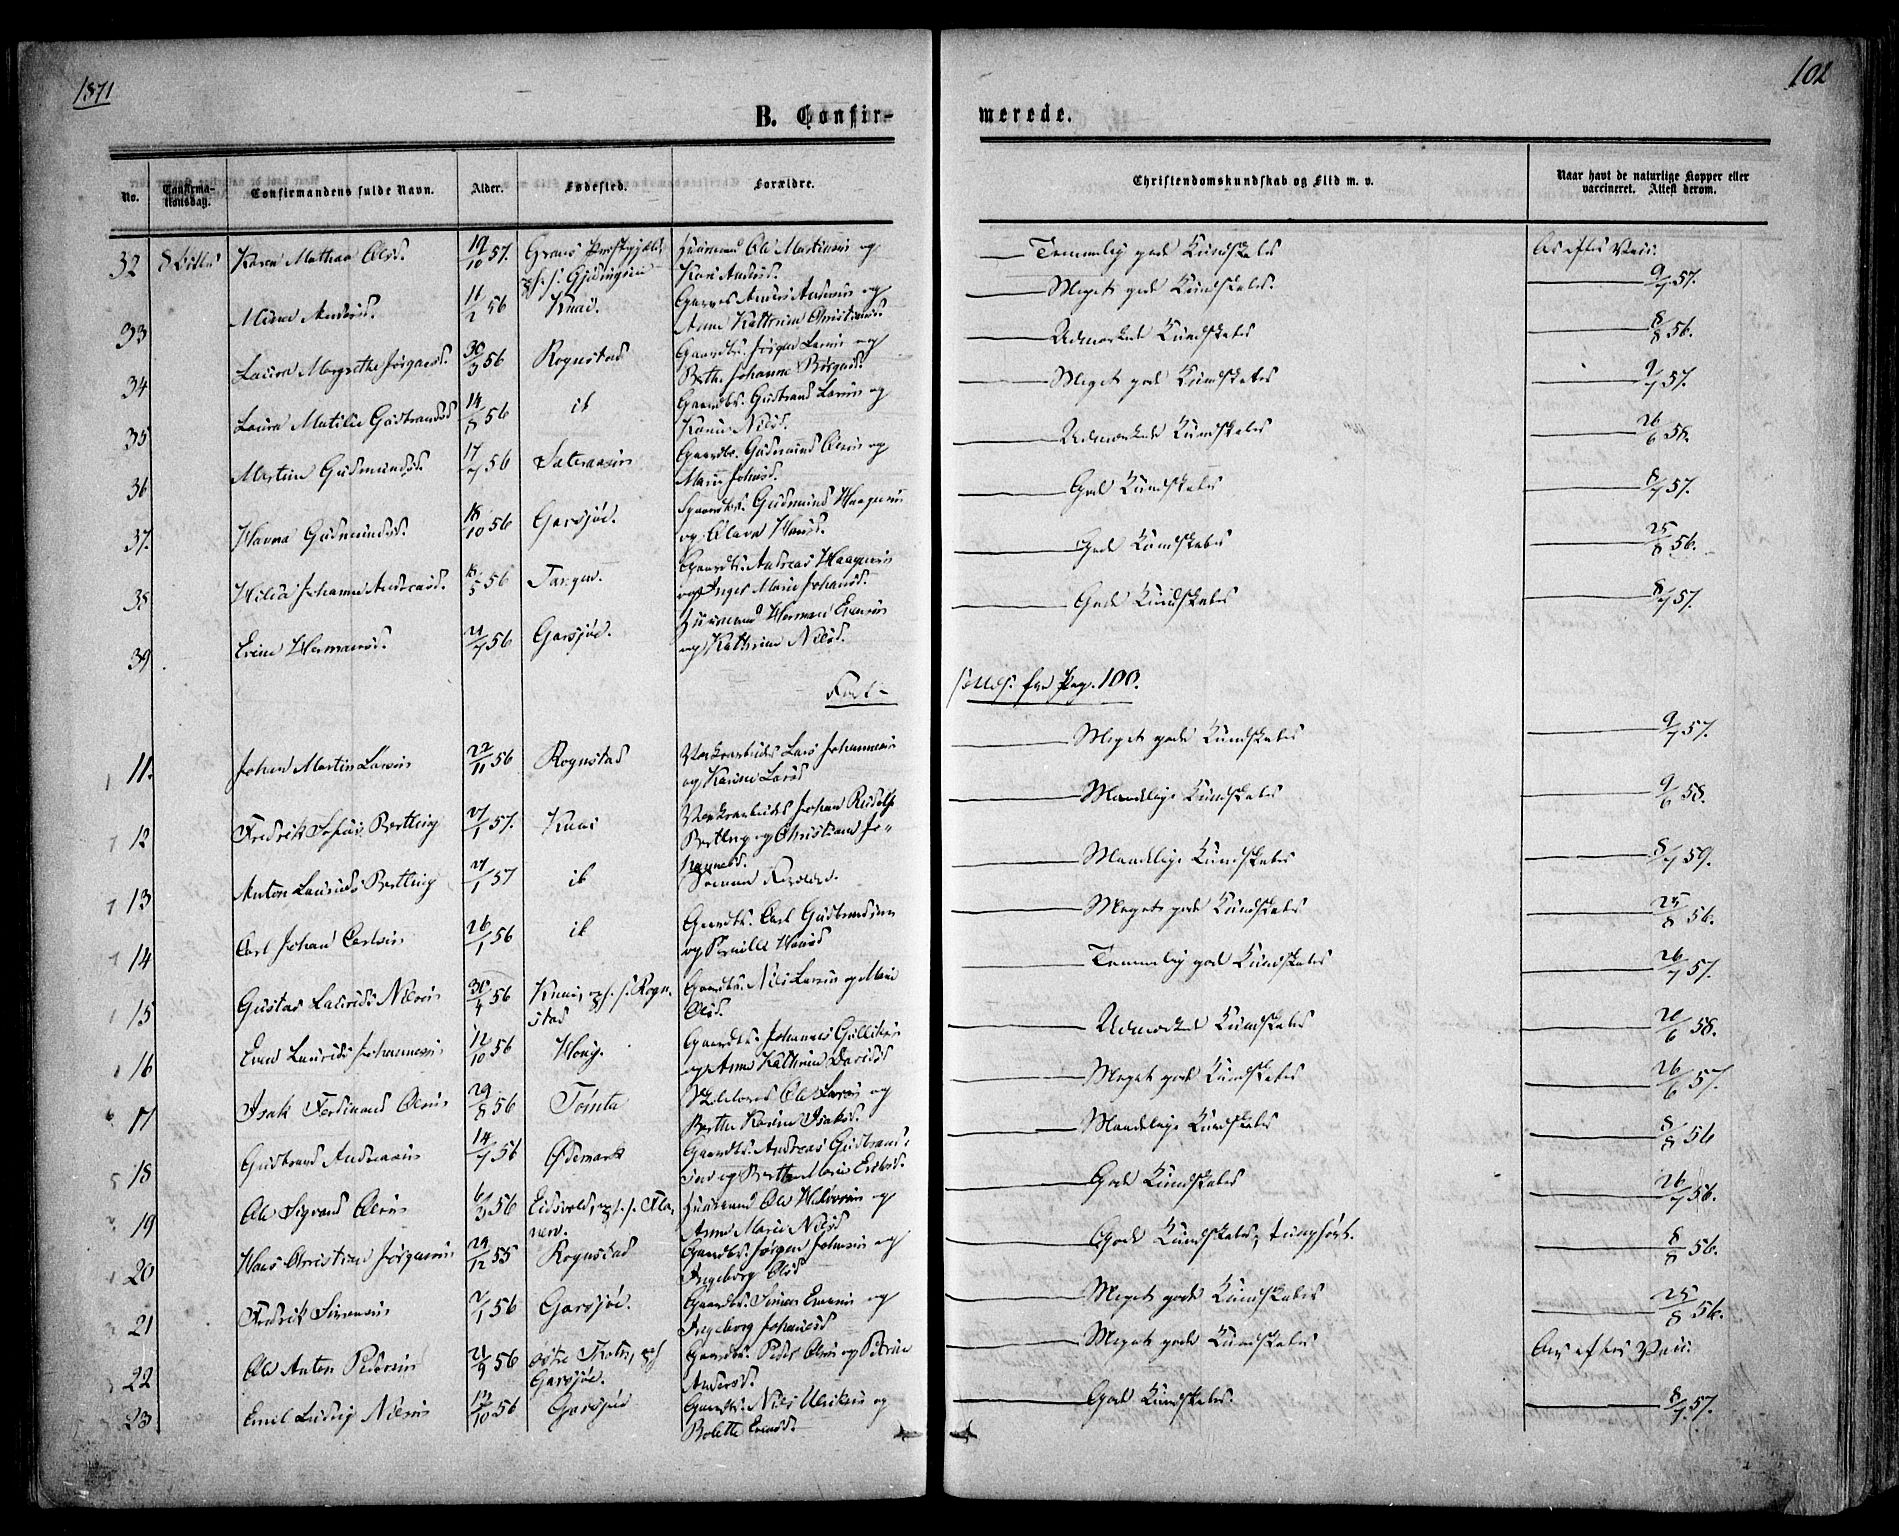 1871
102
B. Confir-
merede.
No.
Confirma-
tionsdag.
Confirmandens fulde Navn.
Alder.
Fødested.
Forældre.
Christendomskundskab og Flid m. v.
Naar havt de naturlige Kopper eller
vaccineret. Attest derom.
32 Karen Mathea Olsd. 19/10 57. Grans Præstegjeld, Huusmand Ole Martinsen og
Kari Andersd.
Temmelig gode Kundskaber
33 11/2 56 Knai. Gaardbr. Anders Andersen og
Anne Kathrine Christiansd.
Meget gode Kundskaber. 9/7 57.
34 Laura Margrethe Jørgensd. 30/3 56 Rognstad Gaardbr. Jørgen Larsen og
Berthe Johanne Børgesd.
Udmærkede Kundskaber 8/8 56.
35 Laura Mathilde Gudbrandsd. 14/8 56 ib Gaardbr. Gudbrand Larsen og
Karen Nilsd.
Meget gode Kundskaber 9/7 57.
36 Martine Gudmundsd. 17/7 56 Gaardbr. Gudmund Olsen og
Marie Johnsd.
Udmærkede Kundskaber 26/6 58.
37. Hanna Gudmundsd. 18/10 56 Garsjøe. Gaardbr. Gudmund Haagensen
og Olava Hansd.
Gode Kundskaber 8/7 57.
38 Johanne Andreasd. 18/5 56 Tangen. Gaardbr. Andreas Haagensen
og Inger Marie Johansd.
Gode Kundskaber 25/8 56.
39 Eveline Hermansd. 21/7 56 Garsjøe. Huusmand Herman Evensen
og Kathrine Nilsd.
Gode Kundskaber 8/7 57.
Fort-
sættes fra Pag. 100.
11. Johan Martin Larsen 22/11 56 Rognstad Værksarbeider Lars Johannesen
og Karine Larsd.
Meget gode Kundskaber 9/7 57.
12 Fredrik Bertling 27/1 57. Knai Værksarbeider Johan Rudolf
Bertling og Christiane Jo-
hannesd.
Maadelige Kundskaber 9/6 58.
13 Anton Laurids Bertling 27/1 57 ib Samme Forældre.
Maadelige Kundskaber 8/7 59.
14 Carl Johan Carlsen 26/1 56 ib Gaardbr. Carl Gudbrandsen
og Pernille Hansd
Meget gode Kundskaber 25/8 56.
15 Gustav Laurids Nilsen 30/4 56 Knai, Rogn-
stad Gaardbr. Nils Larsen og Mari
Olsd.
Temmelig gode Kundskaber 26/7 57.
16 Even Laurids Johannesen 12/10 56 Gaardbr. Johannes Gulliksen
og Anne Kathrine Davidsd
Udmærkede Kundskaber 26/6 58.
17 Isak Ferdinand Olsen 29/8 56 Tømte Ole Larsen og
Berthe Karine Isaksd.
Meget gode Kundskaber 26/6 57.
18 Gudbrand Andreassen 14/7 56 Ødemark Gaardbr. Andreas Gudbrand-
sen og Berthe Marie Eriksd.
Maadelige Kundskaber 8/8 56
19 Ole Sigvard Olsen 6/3 56 Eidsvold, Huusmand Ole Halvorsen og
Anne Marie Nilsd
Gode Kundskaber 26/7 56.
20 Hans Christian Jørgensen 29/12 55 Rognstad Gaardbr. Jørgen Johnsen og
Ingeborg Olsd
Gode Kundskaber, tunghørt. 8/8 56.
21 Fredrik Simensen 2/1 56 Garsjøe. Gaardbr. Simen Evensen og
Ingeborg Johannesd
Meget gode Kundskaber 25/8 56.
22 Ole Anton Pedersen 21/9 56
Garsjøe. Gaardbr. Peder Olsen og Petrine
Andersd.
Meget gode Kundskaber
23. Emil Ludvig Nilsen 13/10 56 Garsjøe Gaardbr. Nils Ulriksen og
Bolette Evensd.
Gode Kundskaber. 8/7 57.